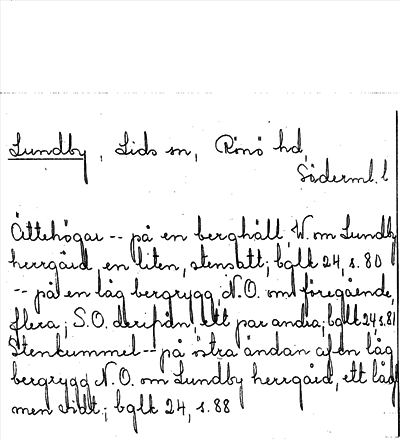 Lundby, Lids sn, Rönö hd,
Söderml. l
Ättehögar -- på en berghäll W. om Lundby
herrgård, en liten, stensatt; bglk 24, s. 80
-- på en låg bergrygg, N.O. om föregående,
flera; S.O. derifrån, ett par andra; bglk 24, s. 81
Stenkummel -- på östra ändan af en låg
bergrygg N.O. om Lundby herrgård, ett låg
men vidt; bglk 24, s. 88